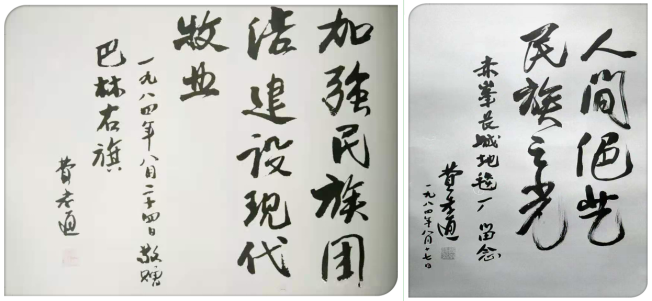 加强民族团
结建设现代
牧业
一九八四年八月二十四日敬赠
巴林右旗
费孝通
人间绝艺
民族之光
赤峯長城地毯厂 留念
费孝通
一九八四年八月十七日